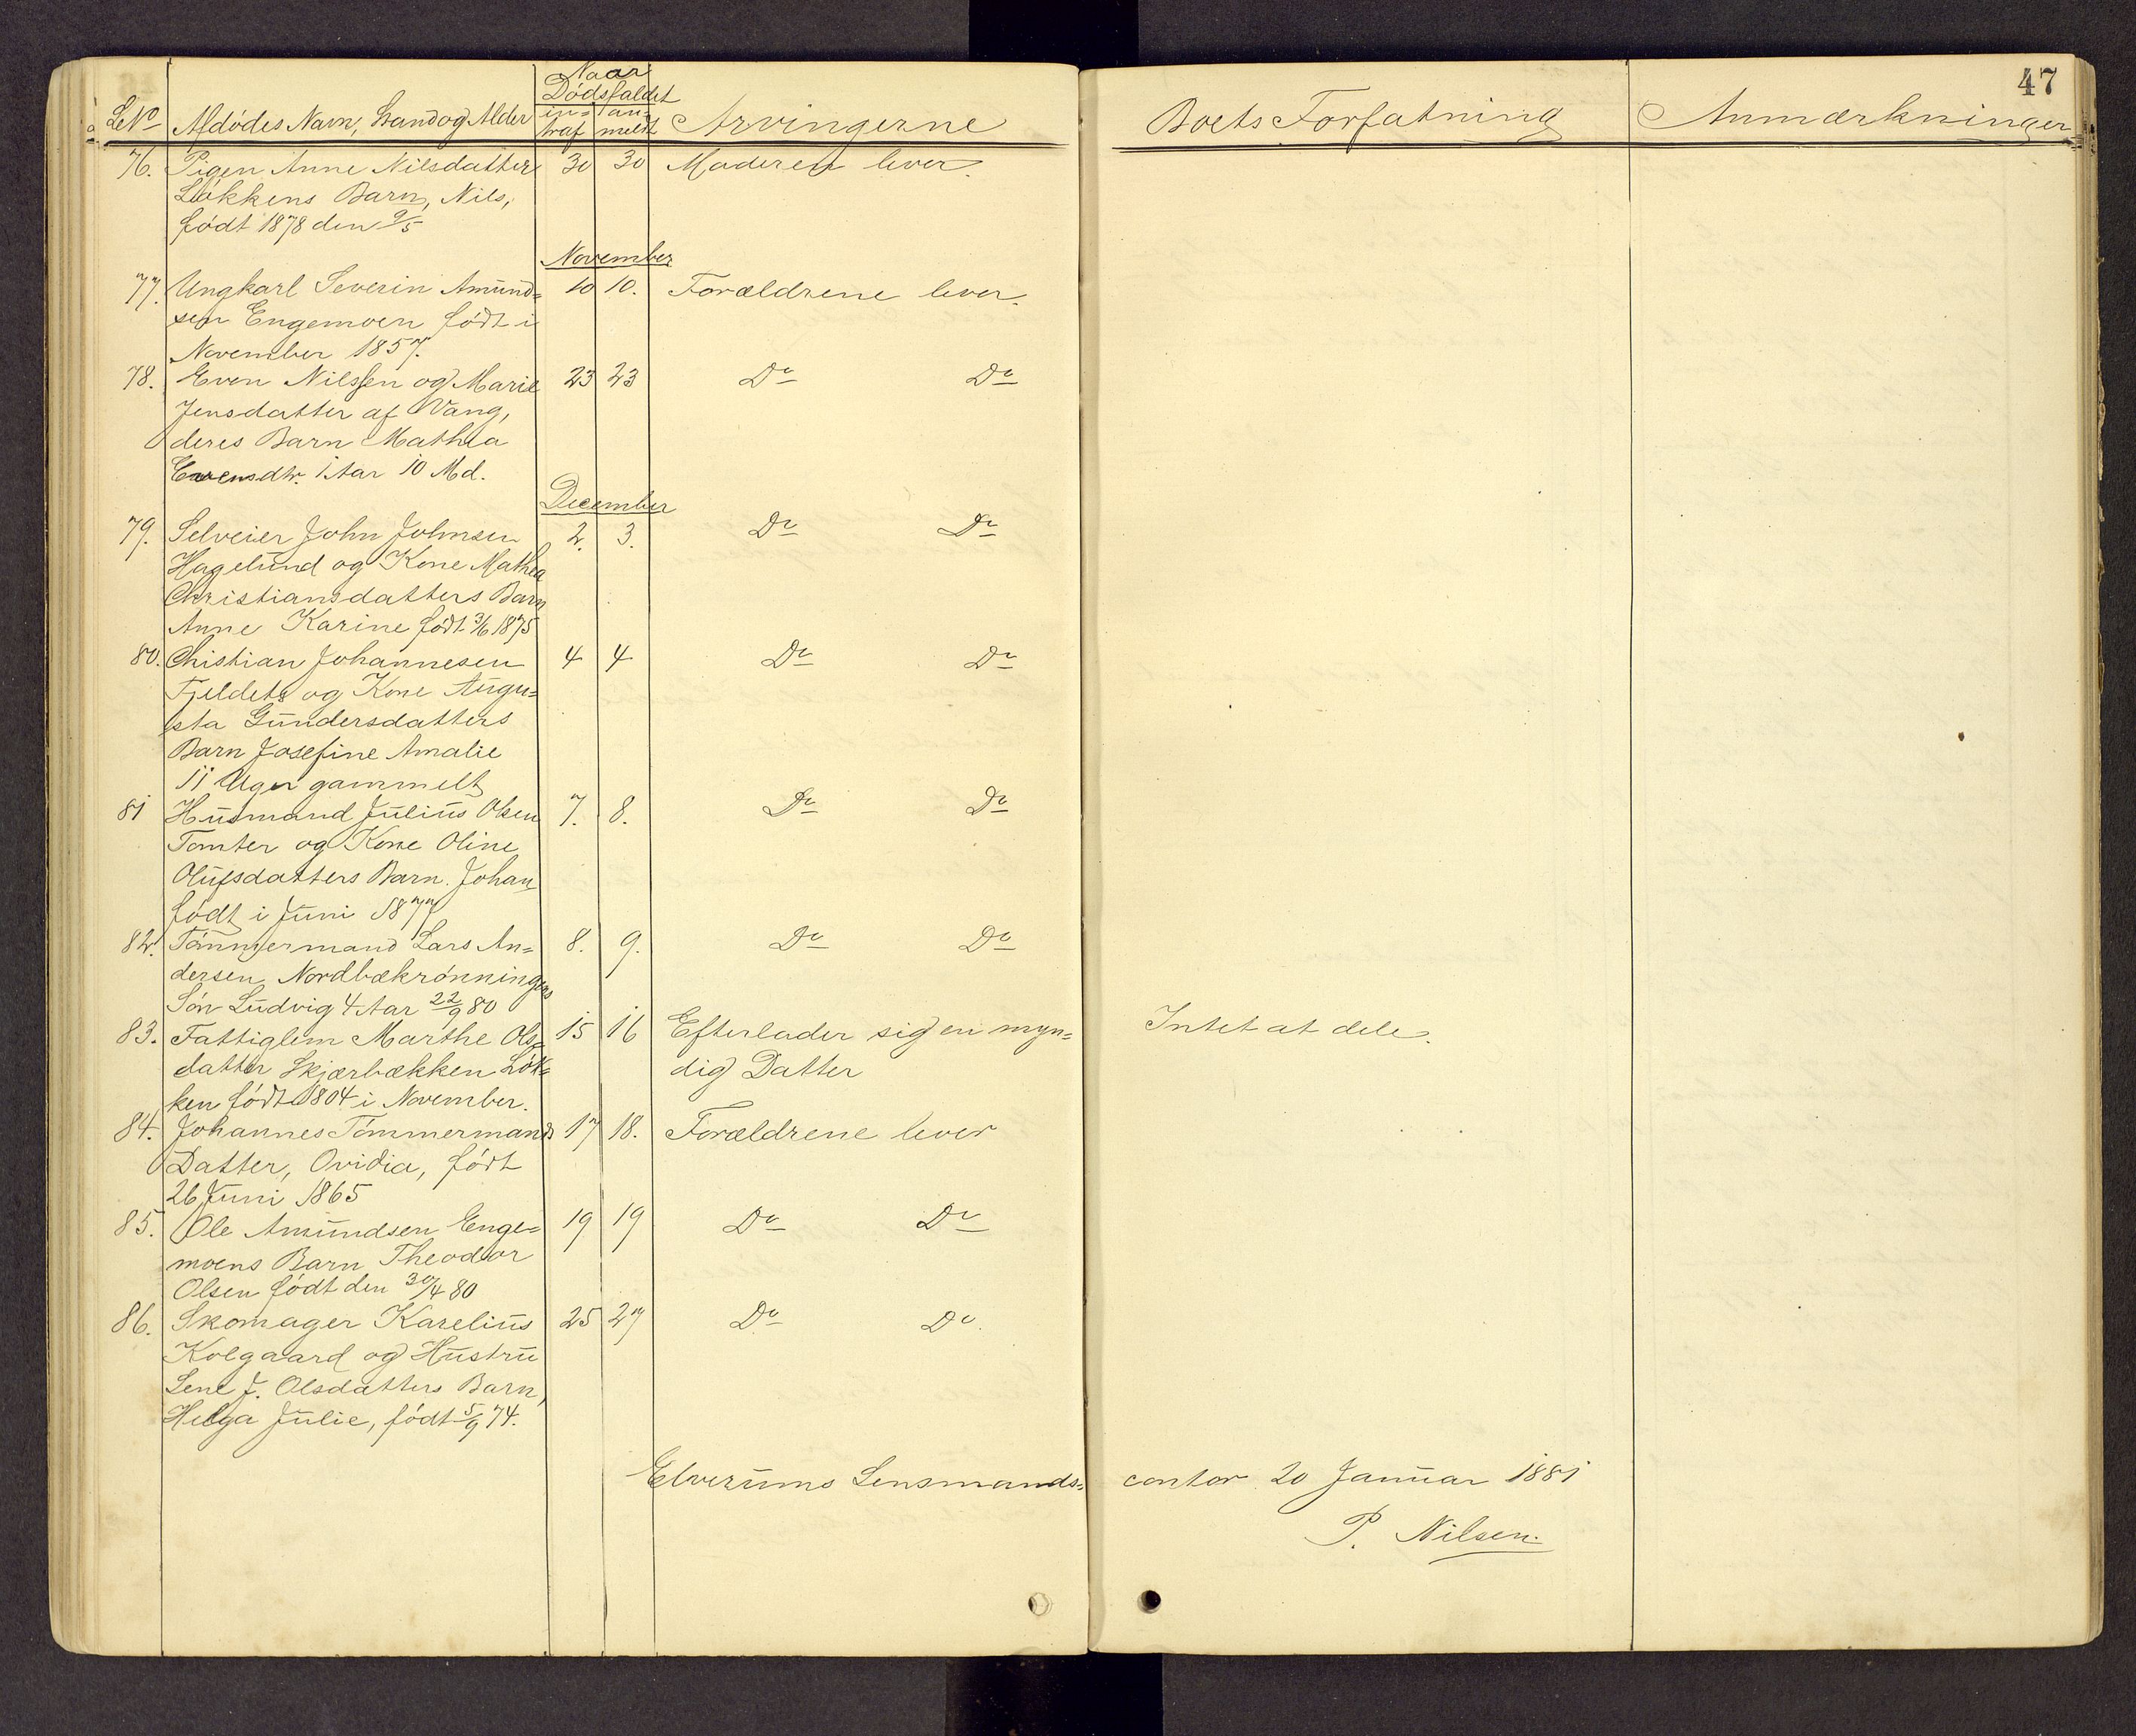 47
Naar
Dödsfaldet
LNo Afdödes Navn, Stand og Alder ind= traf an= meldt Arvingerne Boets Forfatning Anmærkninger
76. Pigen Anne Nilsdatter 30 30 Moderen lever.
Lökkens Barn, Nils,
födt 1878 den 9/5
November
77. Ungkarl Severin Amund= 10 10. Forældrene lever.
sen Engemoen födt i
November 1857.
78. Even Nilssen og Marie 23 23 Do Do
Jensdatter af Vang,
deres Barn Mathea
Evensdtr. 1 Aar 10 Md.
December
79. Selveier John Johnsen 2. 3. Do Do
Hagelund og Kone Mathea
Christiansdatters Barn
Anne Karine födt 3/6 1875
80. Chistian Johannesen 4 4 Do Do
Fjeldets og Kone Augu=
sta Gundersdatters
Barn Josefine Amalie
11 Uger gammelt
81 Husmand Julius Olsen 7. 8. Do Do
Tomter og Kone Oline
Olufsdatters Barn. Johan
födt i Juni 1877
82. Tömmermand Lars An= 8. 9. Do Do
dersen Nordbækrönningens
Sön Ludvig 4 Aar 22/9 80
83. Fattiglem Marthe Ols= 15 16 Efterlader sig en myn= Intet at dele.
datter Skjærbækken Lök= dig Datter
ken födt 1804 i November.
84. Johannes Tömmermands 17 18. Forældrene lever
Datter, Ovidia, födt
26 Juni 1865
85. Ole Amundsen Enge= 19 19 Do Do
moens Barn Theodor
Olsen födt den 30/4 80
86. Skomager Karelius 25 27 Do Do.
Kolgaard og Hustru
Lene J. Olsdatters Barn,
Helga Julie, födt 5/9 74.
Elverums Lensmands= contor 20 Januar 1881
P. Nilsen.